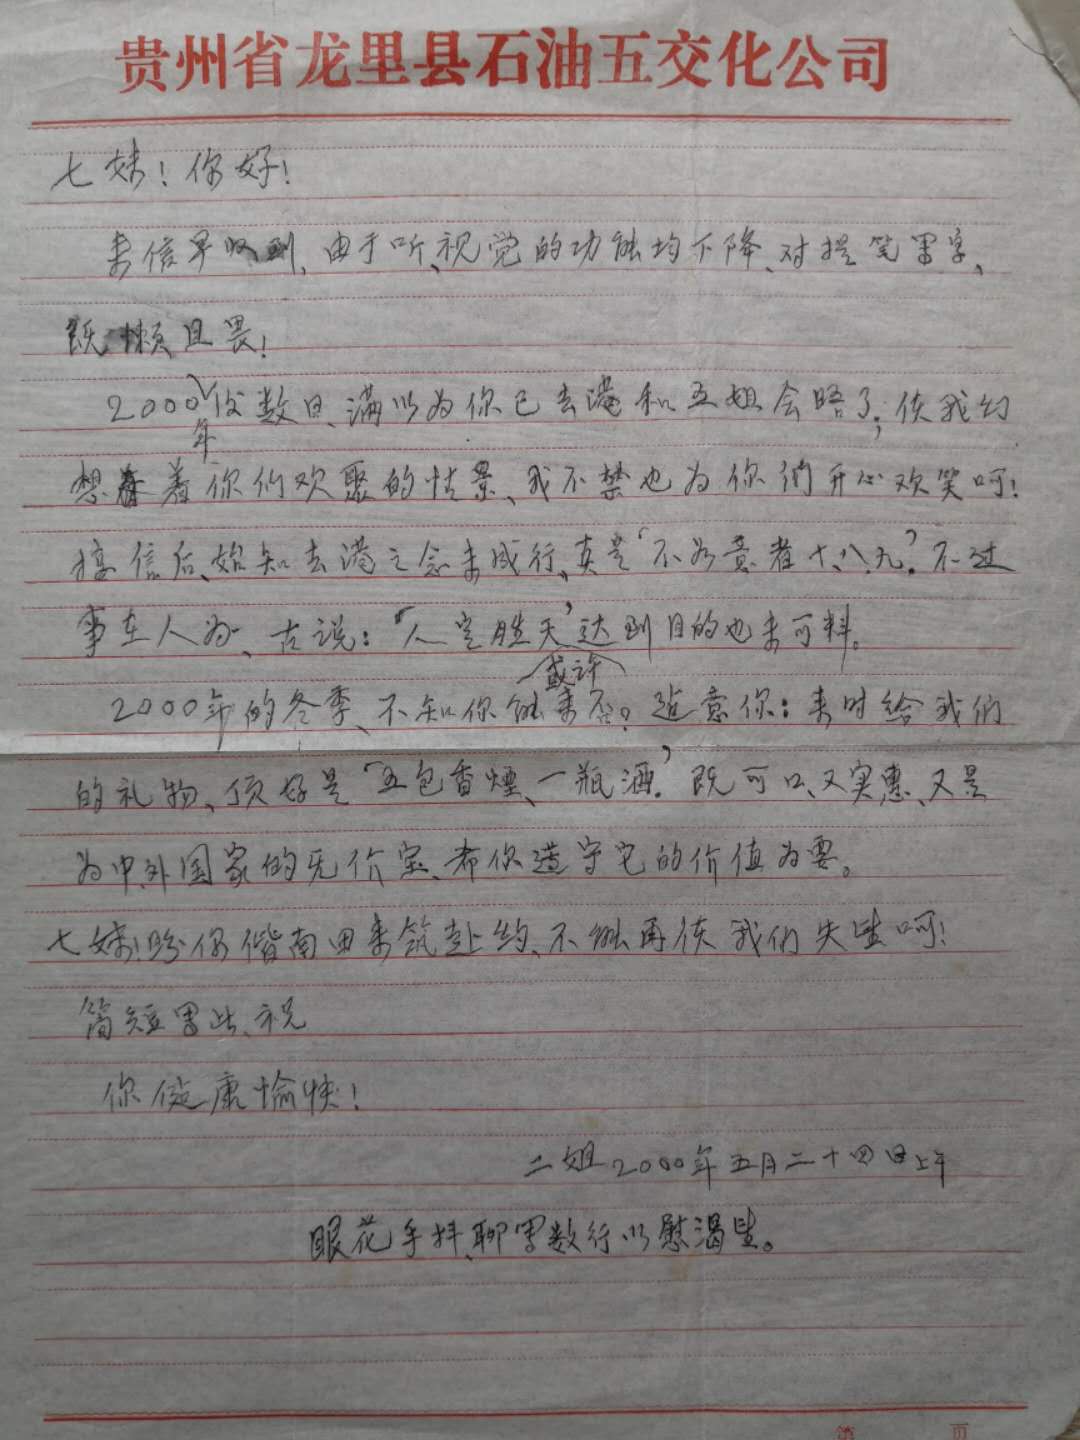 贵州省龙里县石油五交化公司
七妹！你好！
来信早收到、由于听、视觉的功能均下降、对提笔写字、
既懒且畏！
2000年份数日、满以为你已去港和五姐会晤了；使我幻
想着你们欢聚的情景、我不禁也为你們开心欢笑呵！
接信后、始知去港之念未成行、真是“不为意者十、八九”。不过
事在人为、古说：“人定胜天”或许达到目的也未可料。
2000年的冬季、不知你能来否。 意你：来时给我们
的礼物、顶好是“五包香煙、一瓶酒”。既可口、又实惠、又是
为中、外国家的无价宝、希你遵守它的价值为要。
七妹！盼你偕南田来筑赴约、不能再使我们失望呵！
简短写此、祝
你健康愉快！
二姐2000年五月二十四日上午
眼花手抖、聊写数行以慰渴望。
第 页